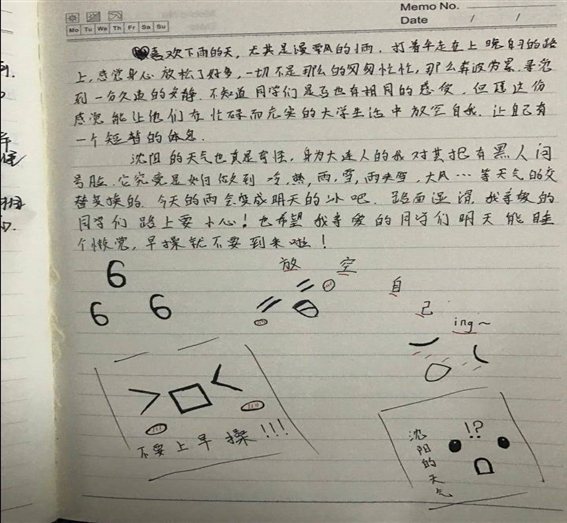 Memo No.
Mo Tu We Th Fr Sa Su
Date / /
喜欢下雨的天,尤其是漫飘的雨.打着伞走在上晚自习的路
上,感觉身心放松了好多,一切不是那么的匆匆忙忙,那么奔波劳累.寻觅
到一份久违的安静.不知道同学们是否也有相同的感受,但愿这份
感觉能让他们在忙碌而充实的大学生活中放空自我,让自己有
一个短暂的休息.
沈阳的天气也真是奇怪,身为大连人的我对其抱有黑人问
号脸.它究竟是如何做到冷,热,雨,雪,雨夹雪,大风…等天气的交
替变换的.今天的雨会变成明天的冰吧.路面湿滑,我亲爱的
同学们路上要小心!也希望我亲爱的同学们明天能睡
个懒觉,早操就不要到来啦!
6
6 6
放空自己ing~
不要上早操!!!
!?
沈阳的天气